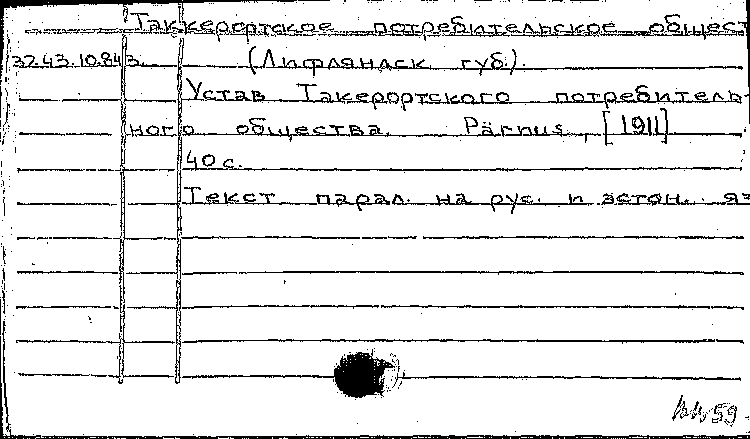 Таккерортское потребительское общест
32.43.10.843. (Лифляндск. губ.).
Устав Такерортского потребитель-
ного общества. Pärnus, [1911]
40 с.
Текст парал. на рус. и эстон. яз
59